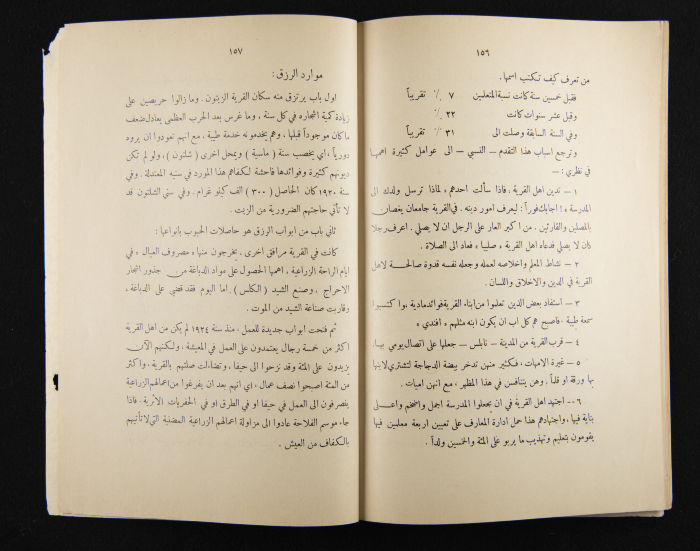 ١٥٦
من تعرف كيف تكتب اسمها.
فقبل خمسين سنة كانت نسبة المتعلمين ٧ ٪ تقريباً
وقبل عشر سنوات كانت ٢٢ ٪
وفي السنة السابقة وصلت الى ٣١ ٪ تقريباً
وترجع اسباب هذا التقدم ــ النسبي ــ الى عوامل كثيرة اهمها
في نظري : ــ
١ ــ تدين اهل القرية . فاذا سألت احدهم « لماذا ترسل ولدك الى
المدرسة » ؟ اجابك فوراً : ليعرف امور دينه . في القرية جامعان يغصان
بالمصلين والقارئين . من اكبر العار على الرجل ان لا يصلي . اعرف رجلا
كان لا يصلي فدعاه اهل القرية « صليبا » فعاد الى الصلاة .
٢ ــ نشاط المعلم واخلاصه لعمله وجعله نفسه قدوة صالحة لاهل
القرية في الدين والاخلاق واللسان .
٣ ــ استفاد بعض الذين تعلموا من ابناء القرية فوائد مادية ، واكتسبوا
سمعة طيبة ، فاصبح هم كل اب ان يكون ابنه مثلهم « افندي »
٤ ــ قرب القرية من المدينة ــ نابلس ــ جعلها على اتصال يومي بها .
٥ ــ غيرة الامهات ، فكثير منهن تدخر بيضة الدجاجة لتشتري لابنها
بها ورقة او قلماً . وهن يتنافسن في هذا المظهر ، مع انهن اميات .
٦ ــ اجتهد اهل القرية في ان يجعلوا المدرسة اجمل واضخم واعلى
بناية فيها ، واجتهادهم هذا حمل ادارة المعارف على تعيين اربعة معلمين فيها
يقومون بتعليم وتهذيب ما يربو على المئة والخمسين ولداً .
١٥٧
موارد الرزق :
اول باب يرتزق منه سكان القرية الزيتون . وما زالوا حريصين على
زيادة كمية اشجاره في كل سنة ، وما غرس بعد الحرب العظمى يعادل ضعف
ما كان موجوداً قبلها ، وهم يخدمونه خدمة طيبة ، مع انهم تعودوا ان يروه
دورياً ، اي يخصب سنة ( ماسية ) ويمحل اخرى ( شلتون ) . ولو لم تكن
ديونهم كثيرة وفوائدها فاحشة لكفاهم هذا المورد في سنيه المعتدلة . وفي
سنة ١٩٣٠ كان الحاصل ( ٣٠٠ ) الف كيلو غرام . وفي سني الشلتون قد
لا تأتي حاجتهم الضرورية من الزيت .
ثاني باب من ابواب الرزق هو حاصلات الحبوب بانواعها :
كانت في القرية مرافق اخرى . يخرجون منها « مصروف العيال » في
ايام الراحة الزراعية ، اهمها الحصول على مواد الدباغة من جذور اشجار
الاحراج ، وصنع الشيد ( الكلس ) . اما اليوم فقد قضي على الدباغة ،
وقاربت صناعة الشيد من الموت .
ثم فتحت ابواب جديدة للعمل ، منذ سنة ١٩٢٤ لم يكن من اهل القرية
اكثر من خمسة رجال يعتمدون على العمل في المعيشة ، ولكنهم الآن
يزيدون على المئة وقد نزحوا الى حيفا ، وتضاءلت صلتهم بالقرية ، واكثر
من المئة اصبحوا نصف عمال ، اي انهم بعد ان يفرغوا من اعمالهم الزراعية
ينصرفون الى العمل في حيفا او في الطرق او في الحفريات الاثرية . فاذا
جاء موسم الفلاحة عادوا الى مزاولة اعمالهم الزراعية المضنية التي لا تأتيهم
بالكفاف من العيش .